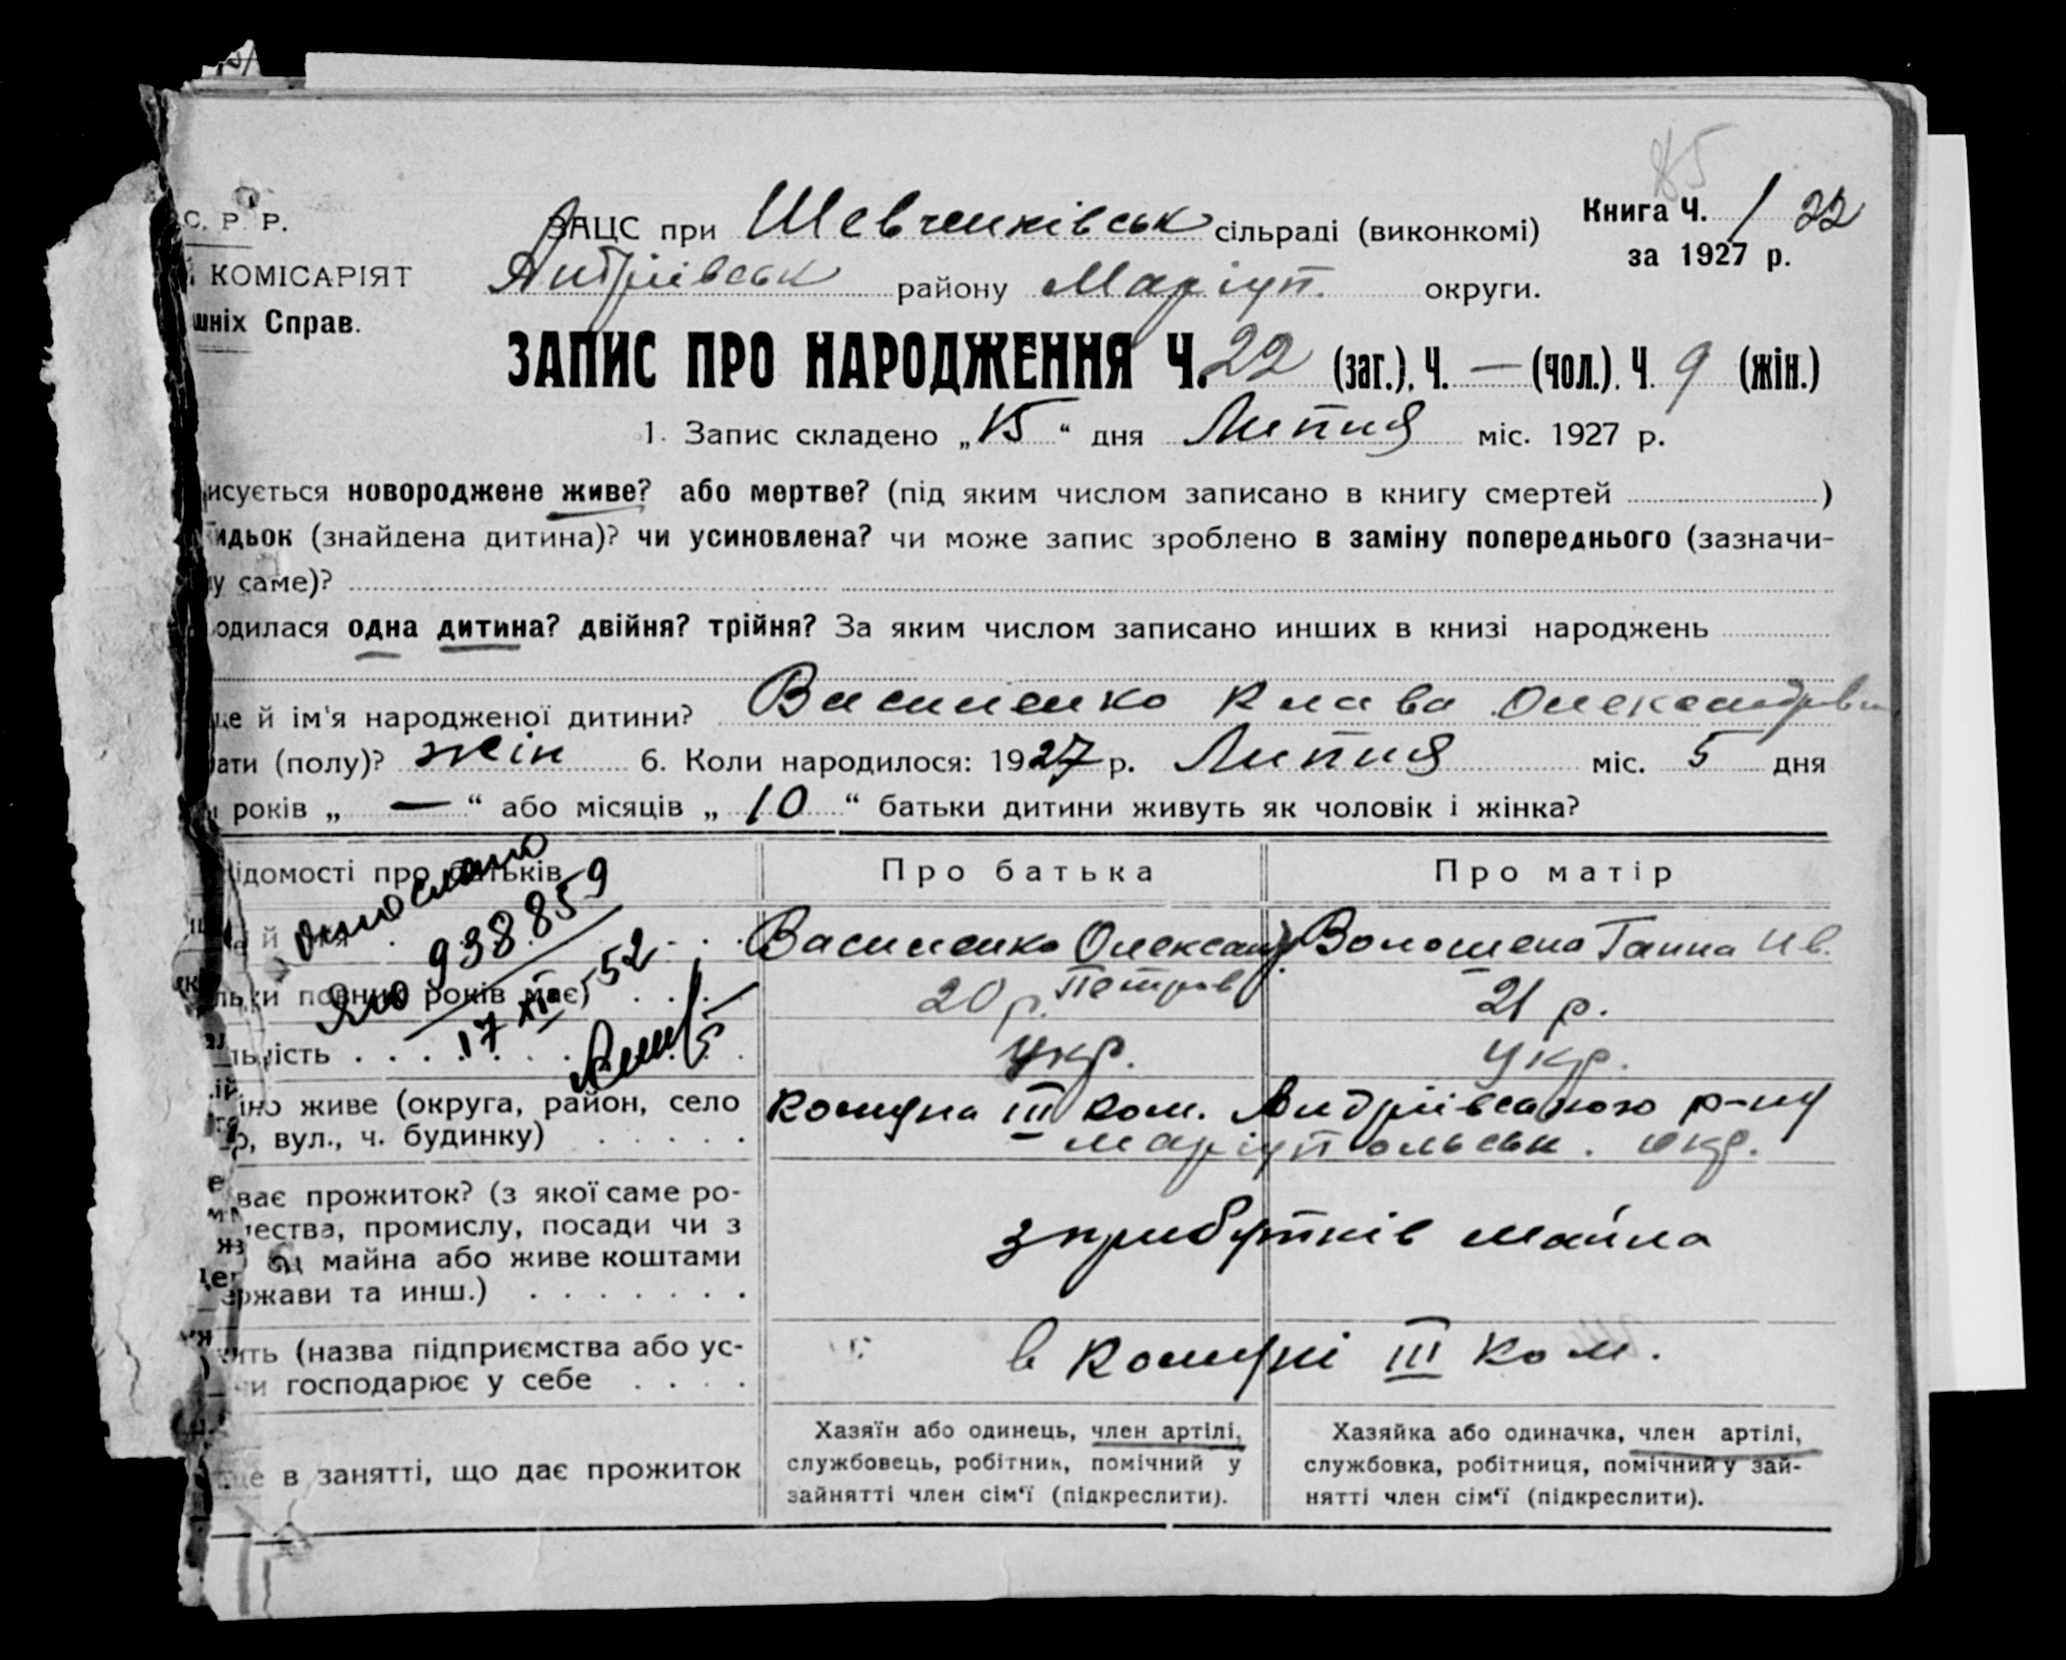 85
С. Р. Р.
КОМІСАРІЯТ
шніх Справ.
ЗАЦС при Шевченківськ сільраді (виконкомі)
Книга Ч. 1 22
за 1927 р.
Андріівськ району Маріуп. округи.
ЗАПИС ПРО НАРОДЖЕННЯ Ч. 22 (заг.), Ч. — (чол.). Ч. 9 (жін.)
1. Запис складено „15“ дня Липня міс. 1927 р.
исується новороджене живе? або мертве? (під яким числом записано в книгу смертей )
идьок (знайдена дитина)? чи усиновлена? чи може запис зроблено в заміну попереднього (зазначи-
у саме)?
одилася одна дитина? двійня? трійня? За яким числом записано инших в книзі народжень
ще й ім'я народженої дитини? Василенко Клава Олександровн
ати (полу)? жін 6. Коли народилося: 1927 р. Липня міс. 5 дня
років „ — “ або місяців „ 10 “ батьки дитини живуть як чоловік і жінка?
ідомості про батьків Про батька Про матір
Василенко Олександ Петров Волошена Ганна Ив.
льки повних років має) 20 р. 21 р.
льність укр. укр.
іно живе (округа, район, село
р, вул., ч. будинку)
Комуна III Ком. Андріівського р-ну
Маріупольськ. окр.
ває прожиток? (з якої саме ро-
ества, промислу, посади чи з
майна або живе коштами
ержави та инш.)
з прибутків майна
ить (назва підприємства або ус-
чи господарює у себе
в Комуні III Ком.
ще в занятті, що дає прожиток
Хазяїн або одинець, член артілі,
службовець, робітник, помічний у
зайнятті член сім'ї (підкреслити).
Хазяйка або одиначка, член артілі,
службовка, робітниця, помічний у зай-
нятті член сім'ї (підкреслити).
938859
17 XI-52